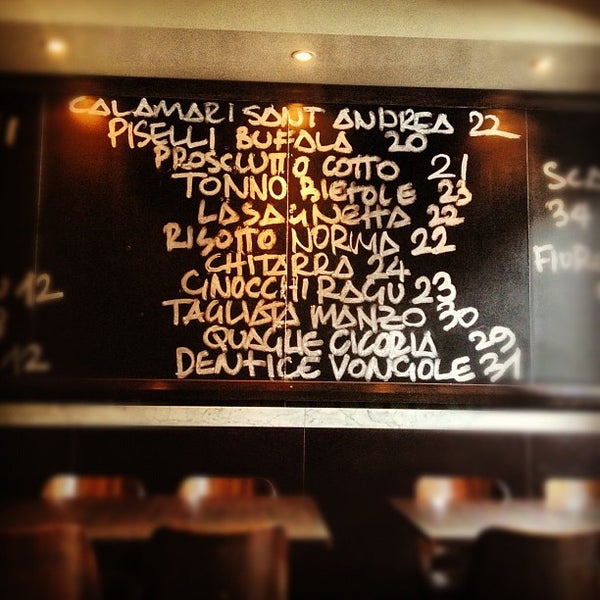 CALAMARI SANT ANDREA 22
PISELLI BUFALA 20
PROSCIUTTO COTTO 21
TONNO BIETOLE 23
LASAGNETTA 22
RISOTTO NORMA 22
CHITARRA 24
GNOCCHI RAGU 23
TAGLIATA MANZO 30
QUAGLIE CICORIA 29
DENTICE VONGOLE 31
12
12
34